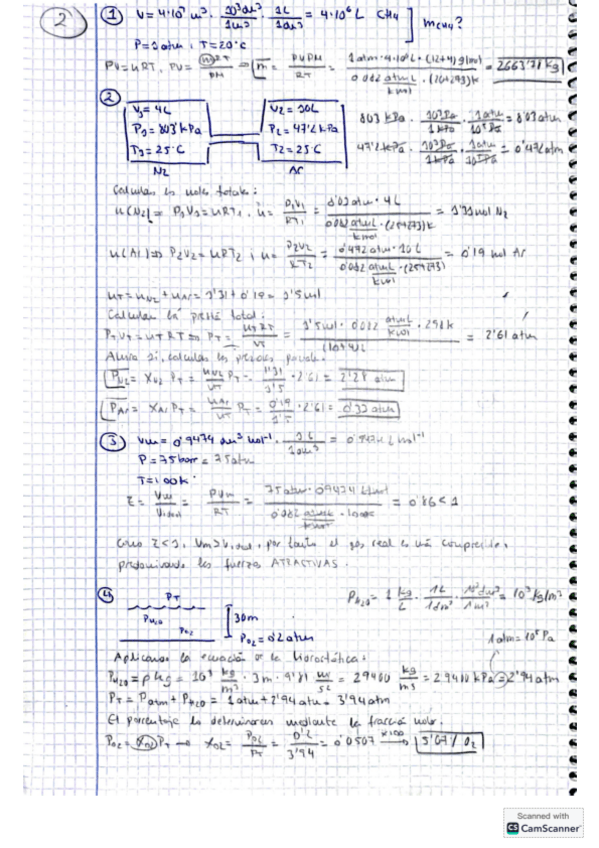 2
1 V = 4·10³ m³ · 10³dm³/1m³ · 1L/1dm³ = 4·10⁶ L CH4] mCH4?
P = 1 atm ; T = 20°C
PV = nRT, PV = mRT/PM ⇒ m = PVPM/RT = 1atm·4·10⁶L·(12+4)g/mol / 0'082 atmL/kmol · (20+273)k = 2663'71 kg
2
V1 = 4L V2 = 10L
P1 = 803 kPa P2 = 47'2 kPa
T1 = 25°C T2 = 25°C
N2 Ar
803 kPa · 10³Pa/1kPa · 1atm/10⁵Pa = 8'03 atm
47'2 kPa · 10³Pa/1kPa · 1atm/10⁵Pa = 0'472 atm
Calculas los moles totales:
n(N2) ⇒ P1V1 = nRT1 ; n = P1V1/RT1 = 8'03 atm · 4L / 0'082 atmL/kmol · (25+273)k = 1'31 mol N2
n(Ar) ⇒ P2V2 = nRT2 ; n = P2V2/RT2 = 0'472 atm · 10L / 0'082 atmL/kmol · (25+273) = 0'19 mol Ar
nT = nN2 + nAr = 1'31 + 0'19 = 1'5 mol
Calculas la presión total:
PTVT = nTRT ⇒ PT = nTRT/VT = 1'5mol · 0'082 atmL/kmol · 298k / (10+4)L = 2'61 atm
Ahora sí, calculas las presiones parciales.
PN2 = XN2 PT = nN2/nT PT = 1'31/1'5 · 2'61 = 2'28 atm
PAr = XAr PT = nAr/nT PT = 0'19/1'5 · 2'61 = 0'33 atm
3 Vm = 0'9474 dm³ mol⁻¹ · 1L/1dm³ = 0'9474 L mol⁻¹
P = 75 bar = 75 atm
Z = Vm/Videal = PVm/RT = 75 atm · 0'9474 L/mol / 0'082 = 0'86 < 1
Como Z<1, por tanto el gas real es más
predominando las fuerzas ATRACTIVAS.
4
PT
PH2O
PO2
30m
PO2 = 0'2 atm
ρH2O = 1 kg/L · 1L/1dm³ · 10³dm³/1m³ = 10³ kg/m³
1 atm = 10⁵ Pa
Aplicamos la ecuación de la hidrostática:
PH2O = ρhg = 10³ kg/m³ · 3m · 9'81 m/s² = 29400 = 2'94 atm
PT = Patm + PH2O = 1 atm + 2'94 atm = 3'94 atm
El porcentaje lo determinamos mediante la fracción molar.
PO2 = XO2 PT → XO2 = PO2/PT = 0'2/3'94 = 0'0507 x100 → 5'07% O2
Scanned with
CS CamScanner